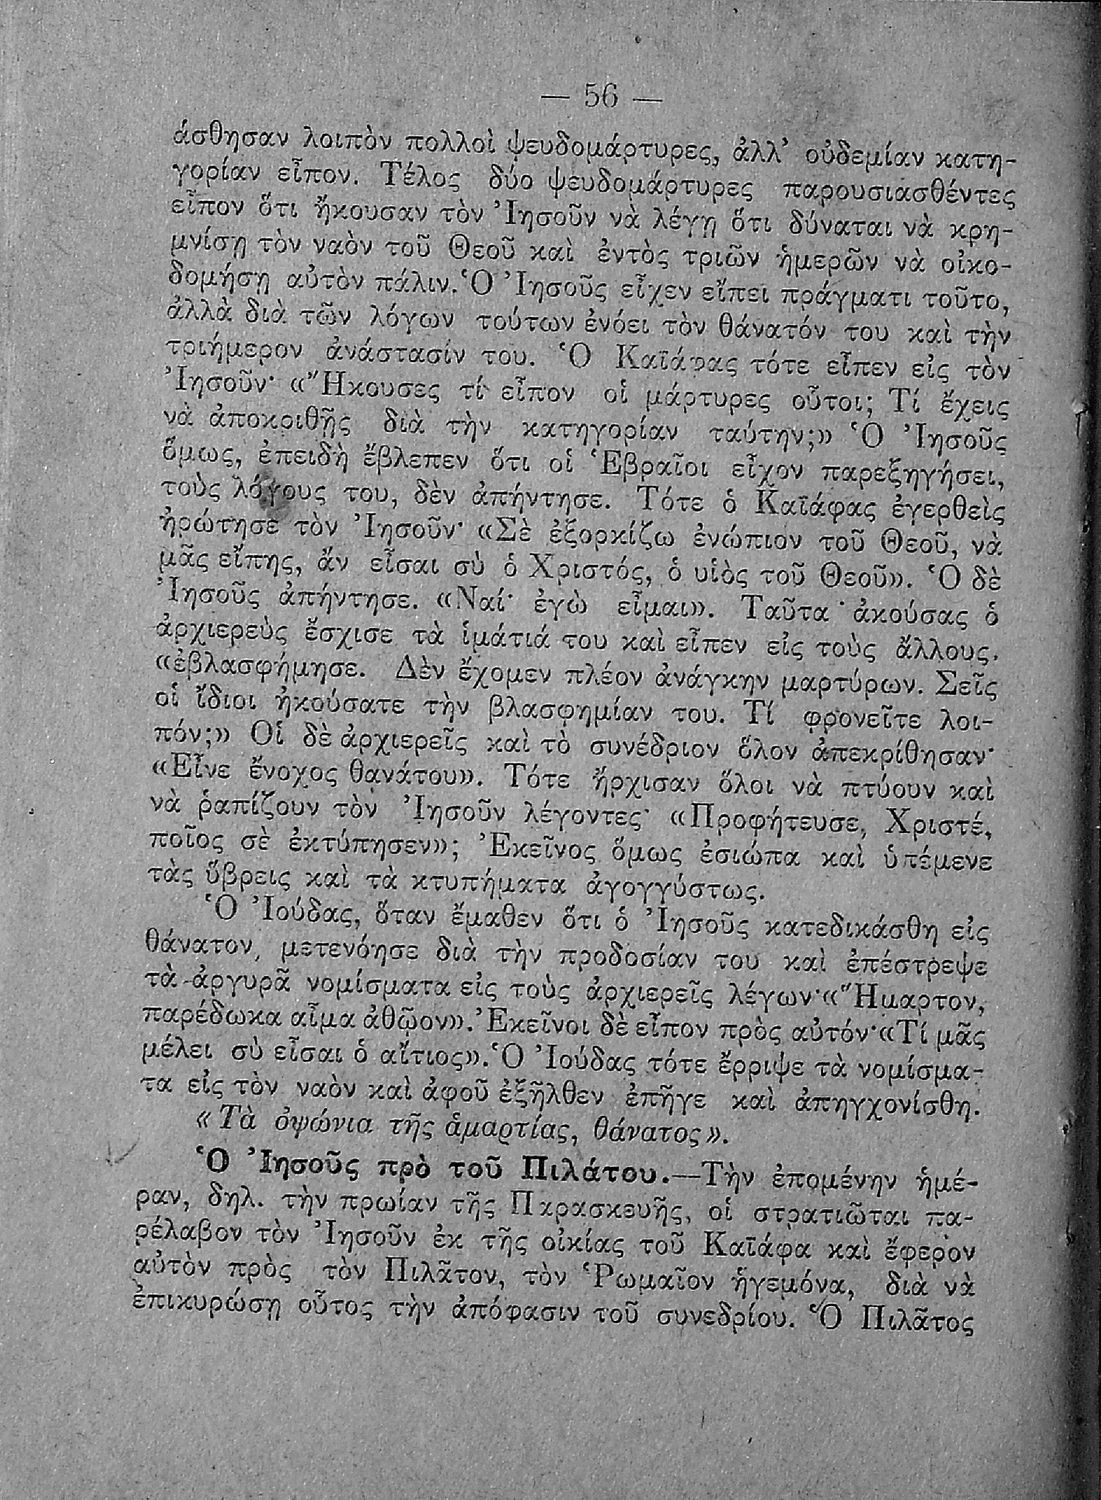 — 56 —
άσθησαν λοιπὸν πολλοὶ ψευδομάρτυρες, ἀλλ' οὐδεμίαν κατη-
γορίαν εἶπον. Τέλος δύο ψευδομάρτυρες παρουσιασθέντες
εἶπον ὅτι ἤκουσαν τὸν Ἰησοῦν νὰ λέγῃ ὅτι δύναται νὰ κρη-
μνίσῃ τὸν ναὸν τοῦ Θεοῦ καὶ ἐντὸς τριῶν ἡμερῶν νὰ οἰκο-
δομήσῃ αὐτὸν πάλιν. Ὁ Ἰησοῦς εἶχεν εἴπει πράγματι τοῦτο,
ἀλλὰ διὰ τῶν λόγων τούτων ἐνόει τὸν θάνατόν του καὶ τὴν
τριήμερον ἀνάστασίν του. Ὁ Καϊάφας τότε εἶπεν εἰς τὸν
Ἰησοῦν· «Ἤκουσες τί εἶπον οἱ μάρτυρες οὗτοι; Τί ἔχεις
νὰ ἀποκριθῇς διὰ τὴν κατηγορίαν ταύτην;» Ὁ Ἰησοῦς
ὅμως, ἐπειδὴ ἔβλεπεν ὅτι οἱ Ἑβραῖοι εἶχον παρεξηγήσει,
τοὺς λόγους του, δὲν ἀπήντησε. Τότε ὁ Καϊάφας ἐγερθεὶς
ἠρώτησε τὸν Ἰησοῦν· «Σὲ ἐξορκίζω ἐνώπιον τοῦ Θεοῦ, νὰ
μᾶς εἴπῃς, ἄν εἶσαι σὺ ὁ Χριστός, ὁ υἱὸς τοῦ Θεοῦ». Ὁ δὲ
Ἰησοῦς ἀπήντησε. «Ναί· ἐγὼ εἶμαι». Ταῦτα ἀκούσας ὁ
ἀρχιερεὺς ἔσχισε τὰ ἱμάτιά του καὶ εἶπεν εἰς τοὺς ἄλλους.
«ἐβλασφήμησε. Δὲν ἔχομεν πλέον ἀνάγκην μαρτύρων. Σεῖς
οἱ ἴδιοι ἠκούσατε τὴν βλασφημίαν του. Τί φρονεῖτε λοι-
πόν;» Οἱ δὲ ἀρχιερεῖς καὶ τὸ συνέδριον ὅλον ἀπεκρίθησαν·
«Εἶνε ἔνοχος θανάτου». Τότε ἤρχισαν ὅλοι νὰ πτύουν καὶ
νὰ ῥαπίζουν τὸν Ἰησοῦν λέγοντες· «Προφήτευσε, Χριστέ,
ποῖος σὲ ἐκτύπησεν»; Ἐκεῖνος ὅμως ἐσιώπα καὶ ὑπέμενε
τὰς ὕβρεις καὶ τὰ κτυπήματα ἀγογγύστως.
Ὁ Ἰούδας, ὅταν ἔμαθεν ὅτι ὁ Ἰησοῦς κατεδικάσθη εἰς
θάνατον, μετενόησε διὰ τὴν προδοσίαν του καὶ ἐπέστρεψε
τὰ ἀργυρᾶ νομίσματα εἰς τοὺς ἀρχιερεῖς λέγων·«Ἥμαρτον,
παρέδωκα αἷμα ἀθῷον». Ἐκεῖνοι δὲ εἶπον πρὸς αὐτόν·«Τί μᾶς
μέλει σὺ εἶσαι ὁ αἴτιος». Ὁ Ἰούδας τότε ἔρριψε τὰ νομίσμα-
τα εἰς τὸν ναὸν καὶ ἀφοῦ ἐξῆλθεν ἐπῆγε καὶ ἀπηγχονίσθη.
«Τὰ ὀψώνια τῆς ἁμαρτίας, θάνατος».
Ὁ Ἰησοῦς πρὸ τοῦ Πιλάτου.—Τὴν ἐπομένην ἡμέ-
ραν, δηλ. τὴν πρωίαν τῆς Παρασκευῆς, οἱ στρατιῶται πα-
ρέλαβον τὸν Ἰησοῦν ἐκ τῆς οἰκίας τοῦ Καϊάφα καὶ ἔφερον
αὐτὸν πρὸς τὸν Πιλᾶτον, τὸν Ῥωμαῖον ἡγεμόνα, διὰ νὰ
ἐπικυρώσῃ οὗτος τὴν ἀπόφασιν τοῦ συνεδρίου. Ὁ Πιλᾶτος